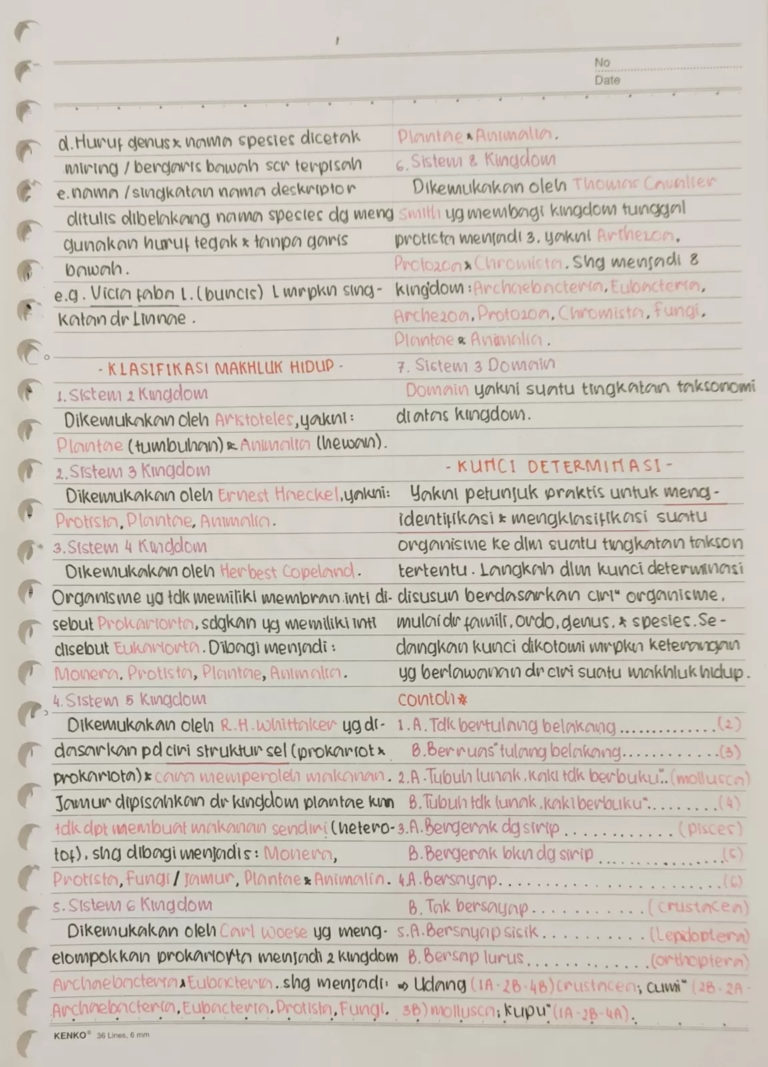 No
Date
d. Huruf genus & nama spesies dicetak
miring / bergaris bawah scr terpisah
e. nama / singkatan nama deskriptor
ditulis dibelakang nama spesies dg meng
gunakan huruf tegak & tanpa garis
bawah.
e.g. Vicia faba L. (buncis) L mrpkn sing-
katan dr Linnae.
- KLASIFIKASI MAKHLUK HIDUP -
1. Sistem 2 Kingdom
Dikemukakan oleh Aristoteles, yakni:
Plantae (tumbuhan) & Animalia (hewan).
2. Sistem 3 Kingdom
Dikemukakan oleh Ernest Haeckel, yakni:
Protista, Plantae, Animalia.
3. Sistem 4 Kingdom
Dikemukakan oleh Herbest Copeland.
Organisme yg tdk memiliki membran inti di-
sebut Prokariorta, sdgkan yg memiliki inti
disebut Eukariorta. Dibagi menjadi:
Monera, Protista, Plantae, Animalia.
4. Sistem 5 Kingdom
Dikemukakan oleh R.H. Whittaker yg di-
dasarkan pd ciri struktur sel (prokariot &
prokariota) & cara memperoleh makanan.
Jamur dipisahkan dr kingdom plantae krn
tdk dpt membuat makanan sendiri (hetero-
tof), shg dibagi menjadi 5: Monera,
Protista, Fungi / Jamur, Plantae & Animalia.
5. Sistem 6 Kingdom
Dikemukakan oleh Carl Woese yg meng-
elompokkan prokariorta menjadi 2 kingdom
Archaebacteria & Eubacteria. shg menjadi:
Archaebacteria, Eubacteria, Protista, Fungi,
Plantae & Animalia.
6. Sistem 8 Kingdom
Dikemukakan oleh Thomas Cavalier
Smith yg membagi kingdom tunggal
proticta menjadi 3, yakni Archezoa,
Protozoa & Chromista. Shg menjadi 8
kingdom: Archaebacteria, Eubacteria,
Archezoa, Protozoa, Chromista, Fungi,
Plantae & Animalia.
7. Sistem 3 Domain
Domain yakni suatu tingkatan taksonomi
diatas kingdom.
- KUNCI DETERMINASI -
Yakni petunjuk praktis untuk meng-
identifikasi & mengklasifikasi suatu
organisme ke dlm suatu tingkatan takson
tertentu. Langkah dlm kunci determinasi
disusun berdasarkan ciri" organisme,
mulai dr famili, ordo, genus, & spesies. Se-
dangkan kunci dikotomi mrpkn keterangan
yg berlawanan dr ciri suatu makhluk hidup.
Contoh*
1. A. Tdk bertulang belakang ............. (2)
B. Berruas" tulang belakang........... (3)
2. A. Tubuh lunak, kaki tdk berbuku".. (mollusca)
B. Tubuh tdk lunak, kaki berbuku"......... (4)
3. A. Bergerak dg sirip ............ (pisces)
B. Bergerak bkn dg sirip ............... (5)
4 A. Bersayap......................... (6)
B. Tak bersayap ............ (crustacea)
5. A. Bersayap sisik ............ (Lepidoptera)
B. Bersap lurus ............... (orthoptera)
⇒ Udang (1A-2B-4B) crustacea; cumi" (2B-2A-
3B) mollusca; kupu" (1A-2B-4A).
KENKO® 36 Lines, 6 mm